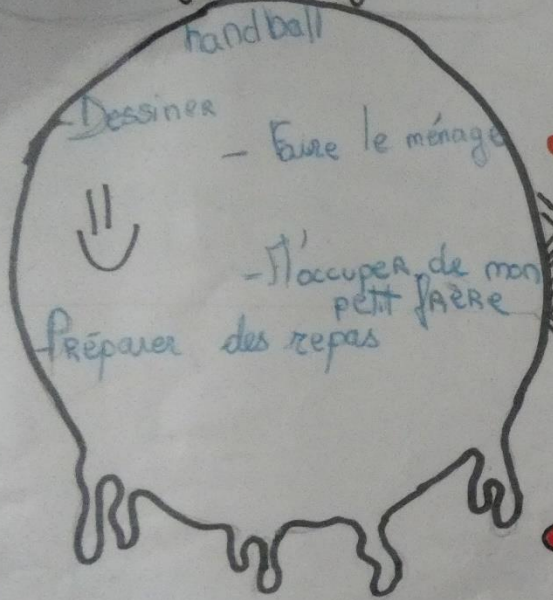 handball
- Dessiner
- Faire le ménage
- M'occuper de mon
petit frère
- Préparer des repas